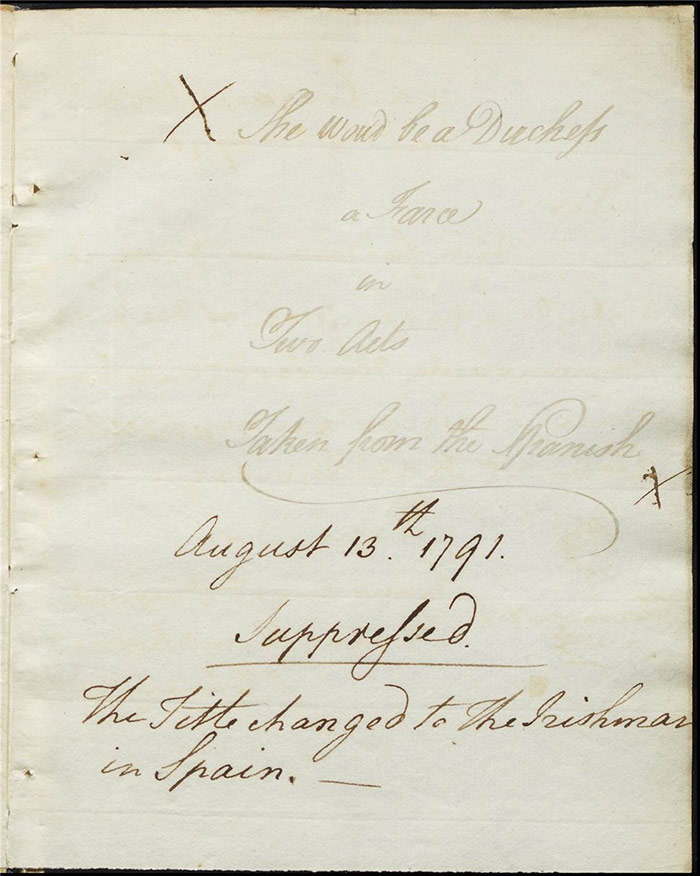 She woud be a Duchess
a Farce
in
Two Acts
Taken from the Spanish
August 13.th 1791.
Suppressed.
The Title changed to The Irishman
in Spain. —